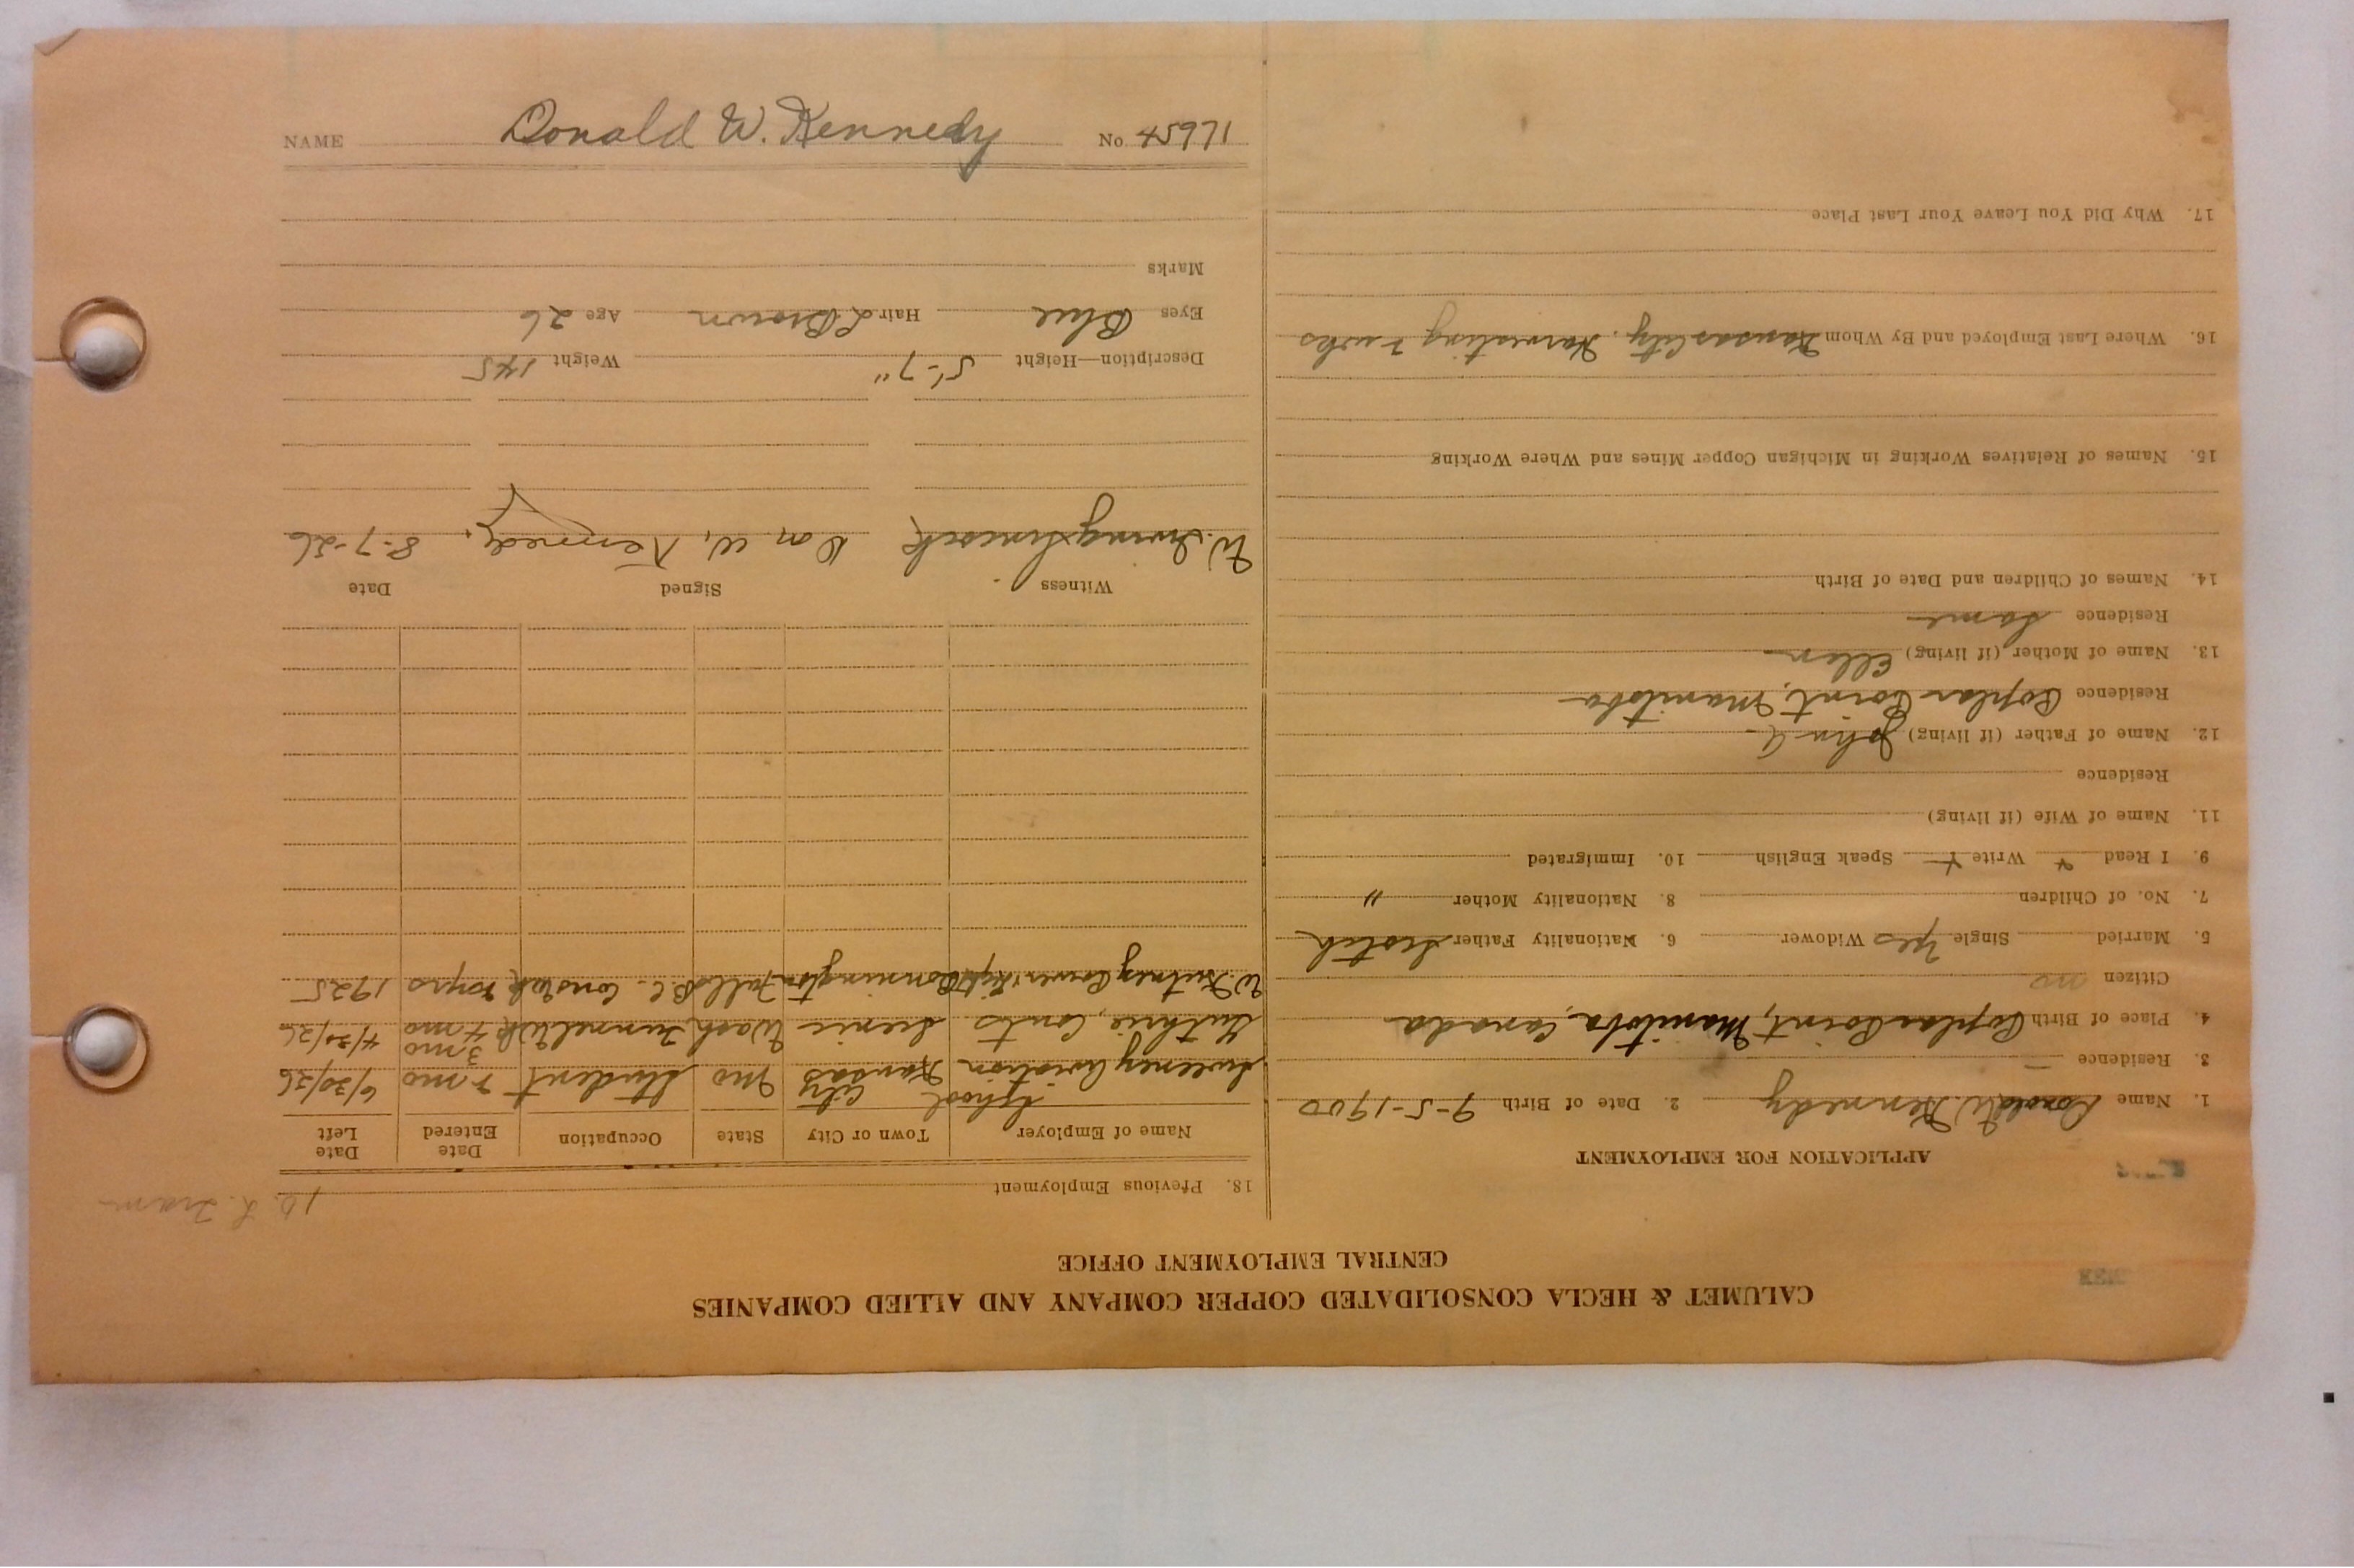 NAME Donald W. Kennedy No 45971
CALUMET & HECLA CONSOLIDATED COPPER COMPANY AND ALLIED COMPANIES
CENTRAL EMPLOYMENT OFFICE
APPLICATION FOR EMPLOYMENT
1. Name Donald W. Kennedy 2. Date of Birth 9-5-1900
3. Residence —
4. Place of Birth Poplar Point, Manitoba, Canada
Citizen no
5. Married Single Yes Widower 6. Nationality Father Scotch
7. No. of Children 8. Nationality Mother "
9. I Read Write Speak English 10. Immigrated
11. Name of Wife (if living)
Residence
12. Name of Father (if living) John A
Residence Poplar Point, Manitoba
13. Name of Mother (if living) Ellen
Residence Same
14. Names of Children and Date of Birth
15. Names of Relatives Working in Michigan Copper Mines and Where Working
16. Where Last Employed and By Whom Kansas City, Harvesting wks
17. Why Did You Leave Your Last Place
18. Previous Employment
Name of Employer Town or City State Occupation Date Entered Date Left
Sweeney Aviation School Kansas City Mo Student mo 6/30/26
Guthrie, Conts Scenic Wash Tunnel Wk 4 mo 4/30/26
3 mo
W. Kootney Power & Light Bonnington Falls B.C. Const. Wk yrs 1925
Witness Signed Date
W. Irving Don W. Kennedy. 8-7-26
Description—Height 5'-7" Weight 145
Eyes Blue Hair L Brown Age 26
Marks